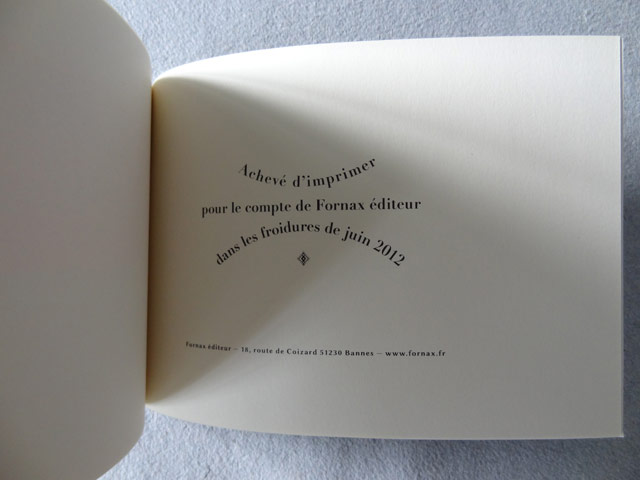 Achevé d'imprimer
pour le compte de Fornax éditeur
dans les froidures de juin 2012
Fornax éditeur – 18, route de Coizard 51230 Bannes – www.fornax.fr